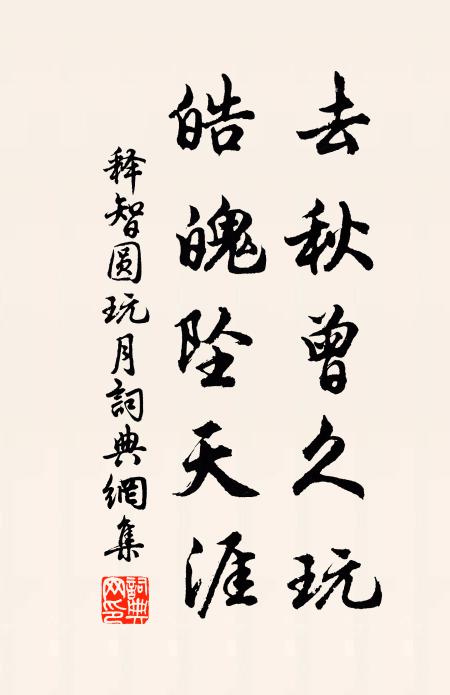 去秋曾久玩
皓魄坠天涯
释智圆玩月詞典網集
詞典网印